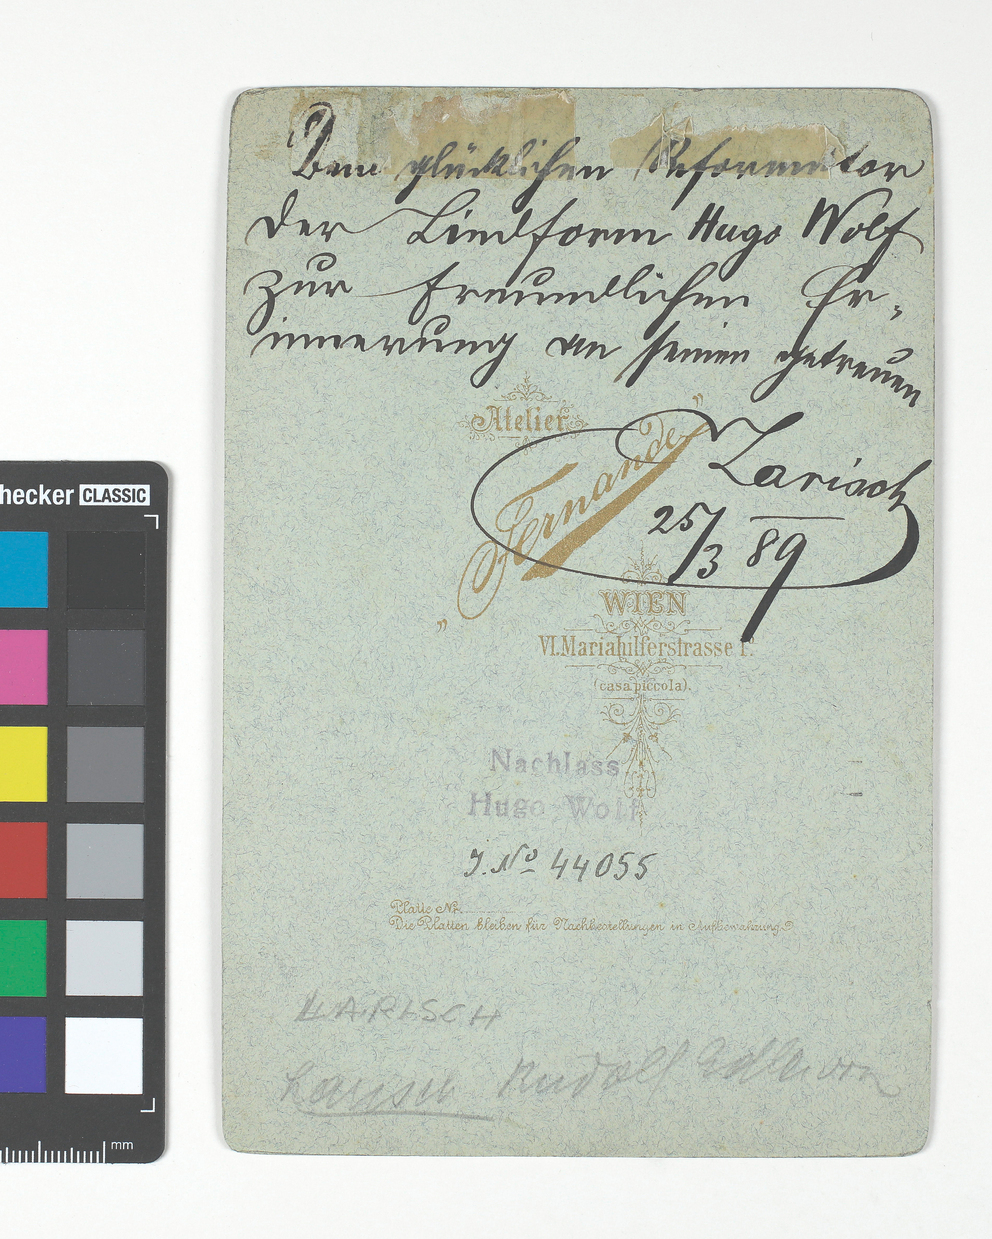 Dem glücklichen Reformator
der Liedform Hugo Wolf
zur freundlichen Er-
innerung an seinen getreuen
Larisch
25/3 89
Atelier
„Fernande”
WIEN
VI. Mariahilferstrasse 1c.
(casa piccola).
Nachlass
Hugo Wolf
J. No 44055
Platte Nr.
Die Platten bleiben für Nachbestellungen in Aufbewahrung.
LARISCH
Larisch Rudolf Edler von
hecker CLASSIC
mm